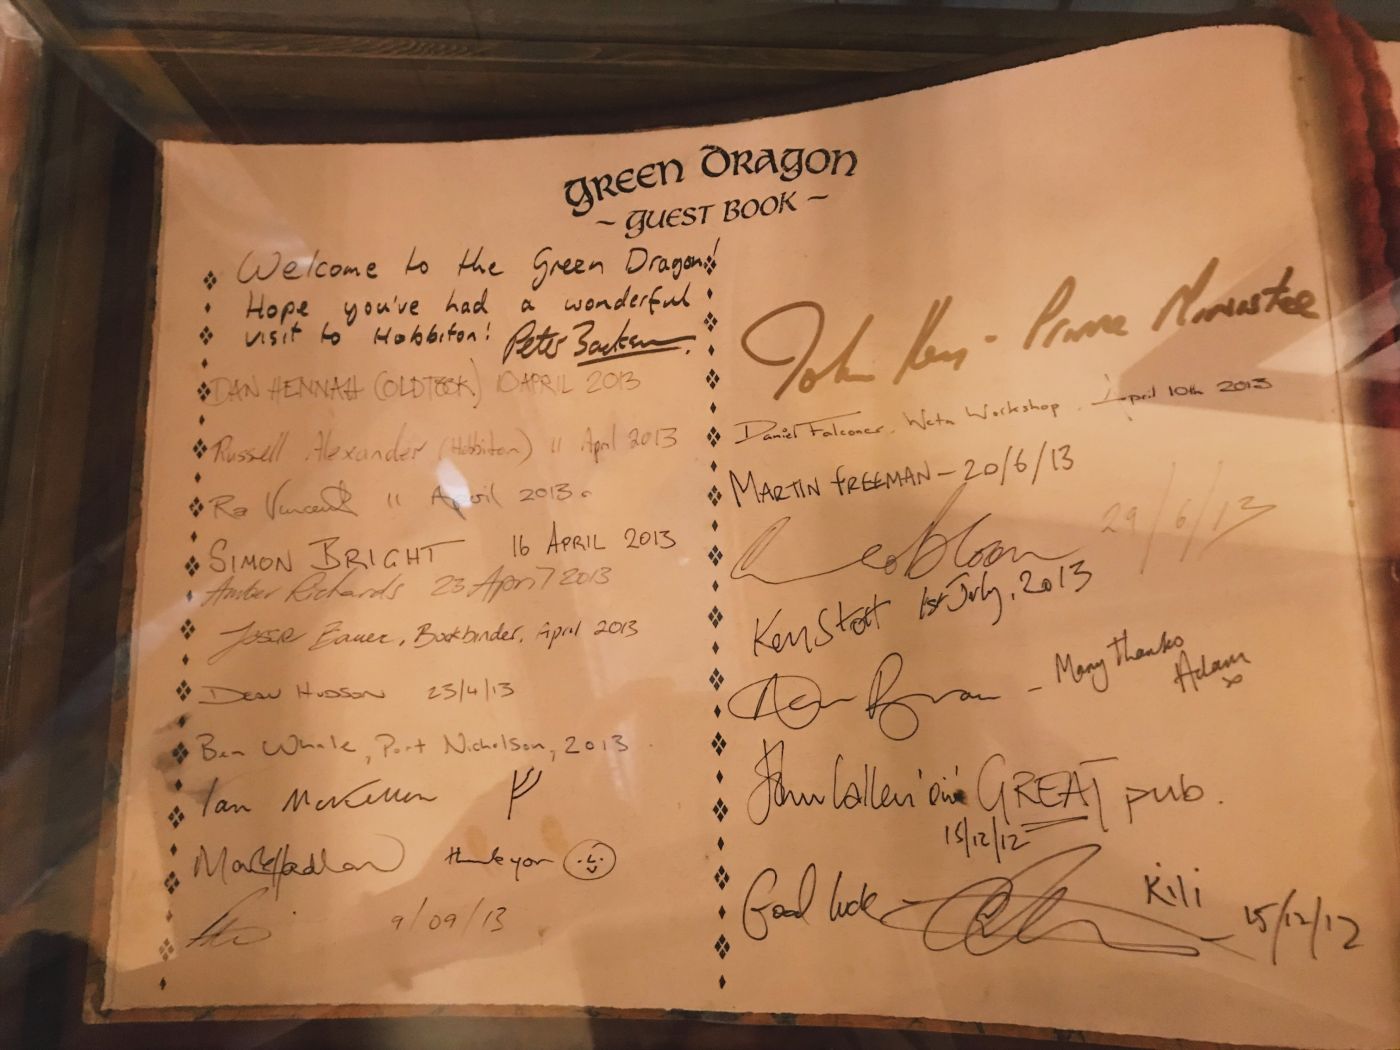 GREEN DRAGON
~ GUEST BOOK ~
Welcome to the Green Dragon!
Hope you've had a wonderful
visit to Hobbiton! Peter
DAN HENNAH (OLDTOOK) 10 APRIL 2013
Russell Alexander (Hobbiton) 11 April 2013
Ra Vincent 11 April 2013.
SIMON BRIGHT 16 APRIL 2013
Amber Richards 23 April 2013
Bookbinder, April 2013
Dean Hudson 23/4/13
Ben Whale, Port Nicholson, 2013
Ian McKellen
Mark Hadlow thank you
9/09/13
John Key - Prime Minister
Daniel Falconer, Weta Workshop, April 10th 2013
MARTIN FREEMAN - 20/6/13
29/6/13
Ken Stott 1st July, 2013
Adam Brown - Many thanks
Adam
x
John Callen GREAT pub.
15/12/12
Good luck - Kili 15/12/12